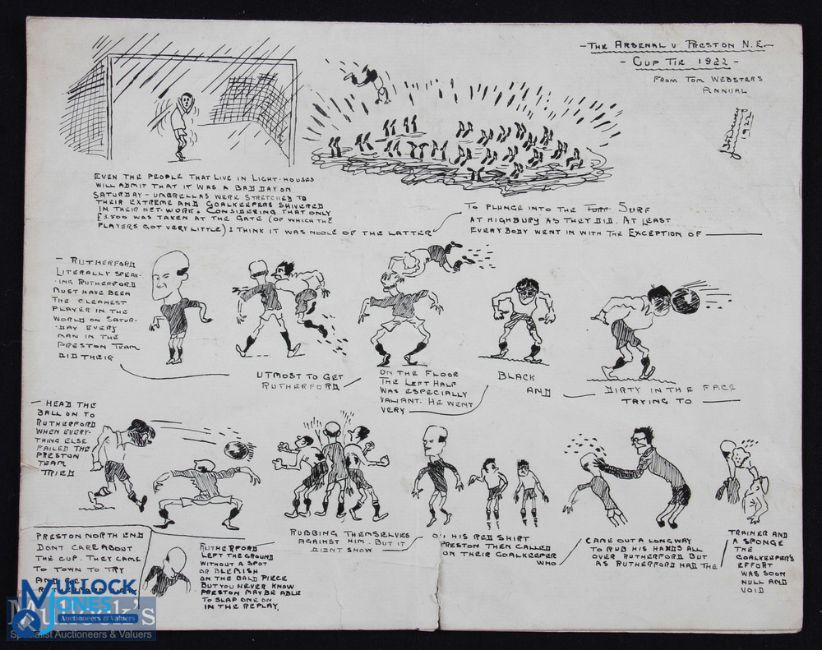 - THE ARSENAL V PRESTON N.E. -
- CUP TIE 1922 -
FROM TOM WEBSTER'S
ANNUAL
1922
EVEN THE PEOPLE THAT LIVE IN LIGHT-HOUSES
WILL ADMIT THAT IT WAS A BAD DAY ON
SATURDAY - UMBRELLAS WERE STRETCHED TO
THEIR EXTREME AND GOALKEEPERS SHIVERED
IN THEIR NET-WORK. CONSIDERING THAT ONLY
£3,500 WAS TAKEN AT THE GATE (OF WHICH THE
PLAYERS GOT VERY LITTLE) I THINK IT WAS NOBLE OF THE LATTER
TO PLUNGE INTO THE SURF
AT HIGHBURY AS THEY DID. AT LEAST
EVERYBODY WENT IN WITH THE EXCEPTION OF
- RUTHERFORD
LITERALLY SPEAK-
-ING RUTHERFORD
MUST HAVE BEEN
THE CLEANEST
PLAYER IN THE
WORLD ON SATUR-
-DAY EVERY
MAN IN THE
PRESTON TEAM
DID THEIR
UTMOST TO GET
RUTHERFORD
ON THE FLOOR
THE LEFT HALF
WAS ESPECIALLY
VALIANT. HE WENT
VERY
BLACK
AND
DIRTY IN THE FACE
TRYING TO
- HEAD THE
BALL ON TO
RUTHERFORD
WHEN EVERY-
THING ELSE
FAILED THE
PRESTON
TEAM
TRIED
RUBBING THEMSELVES
AGAINST HIM. BUT IT
DIDNT SHOW
ON HIS RED SHIRT
PRESTON THEN CALLED
ON THEIR GOALKEEPER
WHO
CAME OUT A LONG WAY
TO RUB HIS HANDS ALL
OVER RUTHERFORD BUT
AS RUTHERFORD HAD THE
TRAINER AND
A SPONGE
THE
GOALKEEPER'S
EFFORT
WAS SOON
NULL AND
VOID
PRESTON NORTH END
DONT CARE ABOUT
THE CUP. THEY CAME
TO TOWN TO TRY
AND GET
RUTHERFORD
RUTHERFORD
LEFT THE GROUND
WITHOUT A SPOT
OR BLEMISH
ON THE BALD PIECE
BUT YOU NEVER KNOW
PRESTON MAY BE ABLE
TO SLAP ONE ON
IN THE REPLAY.
MULLOCK
JONES
Auctioneers & Valuers
Mullock's
Specialist Auctioneers & Valuers